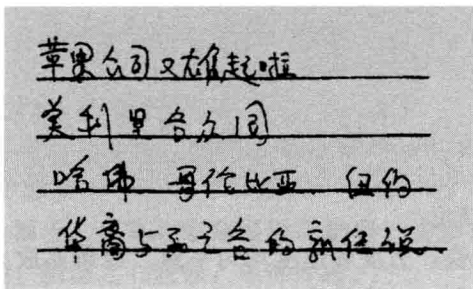 苹果公司又雄起啦
美利坚合众国
哈佛 哥伦比亚 纽约
华裔与孟之合的新任说